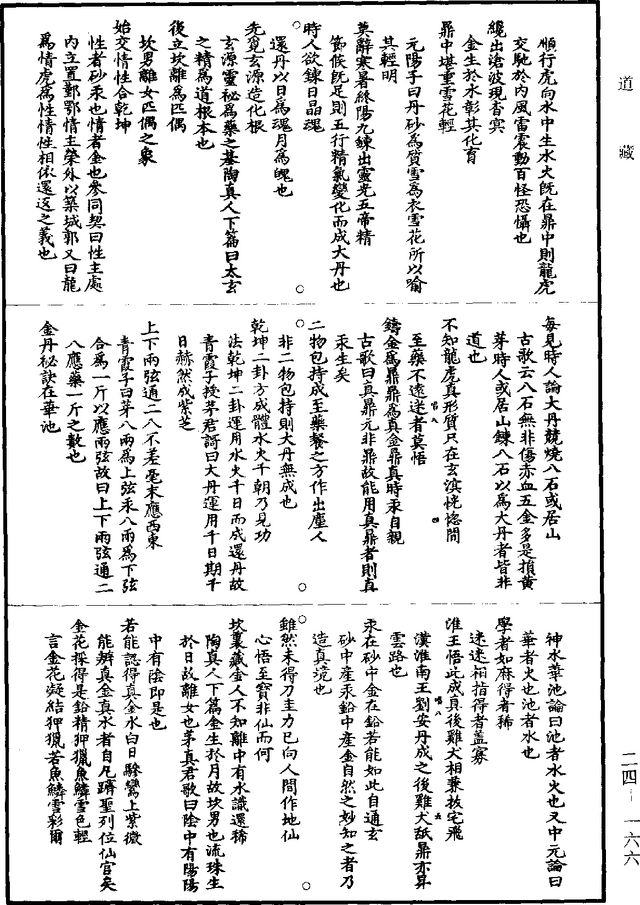 道藏
順行虎向水中生水火既在鼎中則龍虎
交馳於內風雷震動百怪恐懾也
纔出滄波現杳㝠
金生於水彰其化育
鼎中堪重雪花輕
元陽子曰丹砂為質雪為衣雪花所以喻
其輕明
蓂辭寒暑終陽九鍊出靈光五帝精
節候既足則五行精氣變化而成大丹也
時人欲鍊日晶魂
還丹以日為魂月為魄也
先覓玄源造化根
玄源靈祕為藥之基陶真人下篇曰太玄
之精為道根本也
後立坎離為匹偶
坎男離女匹偶之象
始交情性合乾坤
性者砂汞也情者金也參同契曰性主處
內立置鄞鄂情主榮外以築城郭又曰龍
為情虎為性情性相依還返之義也
每見時人論大丹競燒八石或居山
古歌云八石無非傷赤血五金多是損黃
芽時人或居山鍊八石以為大丹者皆非
道也
不知龍虎真形質只在玄濵恍惚間
至藥不遠迷者莫悟
鑄金為鼎鼎為真金鼎真時汞自親
古歌曰真鼎元非鼎故能用真鼎者則真
汞生矣
二物包持成至藥餐之方作出塵人
非二物包持則大丹無成也
乾坤二卦方成體水火千朝乃見功
法乾坤二卦運用水火千日而成還丹故
青霞子授茅君謌曰大丹運用千日期千
日赫然成紫芝
上下兩弦通二八不差毫末應西東
青霞子曰茅八兩為上弦汞八兩為下弦
合為一斤以應兩弦故曰上下兩弦通二
八應藥一斤之數也
金丹祕訣在華池
神水華池論曰池者水火也又中元論曰
華者火也池者水也
學者如麻得者稀
迷迷相指得者蓋寡
淮王悟此成真後雞犬相兼拔宅飛
漢淮南王劉安丹成之後雞犬舐鼎亦昇
雲路也
汞在砂中金在鉛若能如此自通玄
砂中產汞鉛中產金自然之妙知之者乃
造真境也
雖然未得刀圭力已向人間作地仙
心悟至寶非仙而何
坎裏藏金人不知離中有水識還稀
陶真人下篇金生於月故坎男也流珠生
於日故離女也茅真君歌曰陰中有陽陽
中有陰即是也
若能認得真金水白日驂鸞上紫微
能辨真金真水者自凡躋聖列位仙官矣
金花採得是鉛精狎獵魚鱗雪色輕
言金花凝結狎獵若魚鱗雪彩爾
二四-一六六